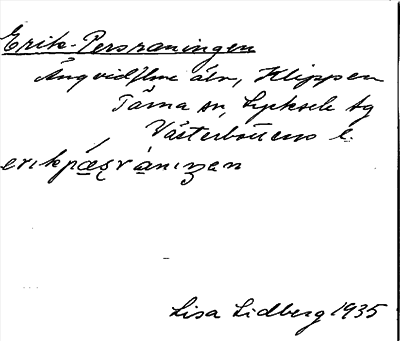 Erik-Persraningen
Äng vid Ume älv, Klippen
Tärna sn, Lycksele tg
Västerbottens l.
erikpæʂrànıŋen
Lisa Lidberg 1935